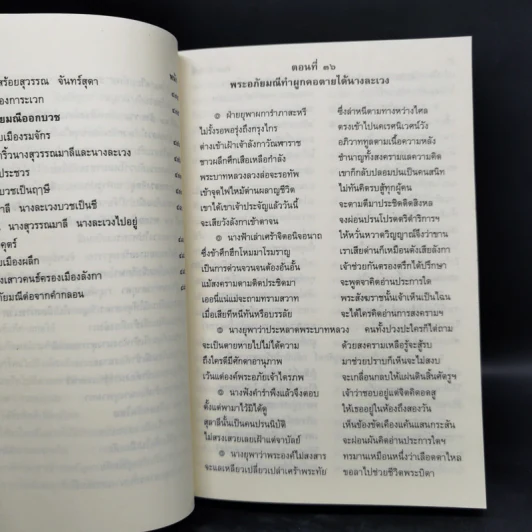 สร้อยสุวรรณ จันทร์สุดา
องการะเวก
ยมณีออกบวช
ยเมืองรมจักร
าริ้วนางสุวรรณมาลีและนางละเวง
ประชวร
บวชเป็นฤๅษี
าลี นางละเวงบวชเป็นชี
นางสุวรรณมาลี นางละเวงไปอยู่
ยเมืองผลึก
งเสาวคนธ์ครองเมืองลังกา
ภัยมณีต่อจากคำกลอน
ตอนที่ ๓๖
พระอภัยมณีทำผูกคอตายได้นางละเวง
๏ ฝ่ายยุพาผการำภาสะหรี ซึ่งลำหนีตามทางหว่างไศล
ไม่รั้งรอพอรุ่งถึงกรุงไกร ตรงเข้าไปนคเรศนิเวศน์วัง
ต่างเข้าเฝ้าเจ้าลังกาวัณฬาราช อภิวาททูลตามเนื้อความหลัง
ชาวผลึกศึกเสือเหลือกำลัง ชำนาญทั้งสงครามแลความคิด
พระบาทหลวงลวงล่อจะรอทัพ เขาก็กลับปลอมปนเป็นคนสนิท
เข้าจุดไฟไหม้ด่านผลาญชีวิต ไม่ทันคิดรบสู้ทุกผู้คน
เขาได้เขาเจ้าประจัญแล้ววันนี้ จะตามตีมาประชิดติดสิงหล
จะเสียวังลังกาเข้าตาจน จงผ่อนปรนโปรดตริดำริการฯ
๏ นางฟังเล่าเศร้าจิตอนิจอนาถ ให้หวั่นหวาดวิญญาณ์จึงว่าขาน
ซึ่งข้าศึกฮึกโหมมาโรมราญ เราเสียด่านก็เหมือนดังเสียลังกา
เป็นการด่วนจวนจนต้องอ้นอั้น เจ้าช่วยกันตรองตรึกได้ปรึกษา
แม้สงครามตามติดประชิดมา จะพูดจาคิดอ่านประการใด
เออนี่แน่แม่จะถามทรามสวาท พระสังฆราชนั้นเจ้าเห็นเป็นไฉน
เมื่อเสียทีหนีทันหรือบรรลัย จะได้ใครคิดอ่านการสงครามฯ
๏ นางยุพาว่าประหลาดพระบาทหลวง คนทั้งปวงปะใครก็ได้ถาม
จะเป็นตายหายไปไม่ได้ความ ด้วยสงครามเหลือรู้จะสู้รบ
ถึงใครดีมีศักดาอานุภาพ มาช่วยปราบก็เห็นจะไม่สงบ
เว้นแต่องค์พระอภัยเจ้าไตรภพ จะเกลื่อนกลบให้แผ่นดินสิ้นศัตรูฯ
๏ นางฟังคำรำพึงแล้วจึงตอบ เจ้าว่าชอบอยู่แต่จิตคิดอดสู
ตั้งแต่พามาไว้มิได้ดู ให้เธออยู่ในห้องถึงสองวัน
สุลาลีนั้นเป็นคนปรนนิบัติ เห็นข้องขัดเคืองแค้นแสนกระสัน
ไม่ตรงเสวยเลยเฝ้าแต่จาบัลย์ จะผ่อนผันคิดอ่านประการใดฯ
๏ นางยุพาว่าพระองค์ไม่สงสาร ทรมานเหมือนหนึ่งว่าเลือดตาไหล
จะแลเหลียวเปลี่ยวเปล่าเศร้าพระทัย ขอลาไปช่วยชีวิตพระบิดา